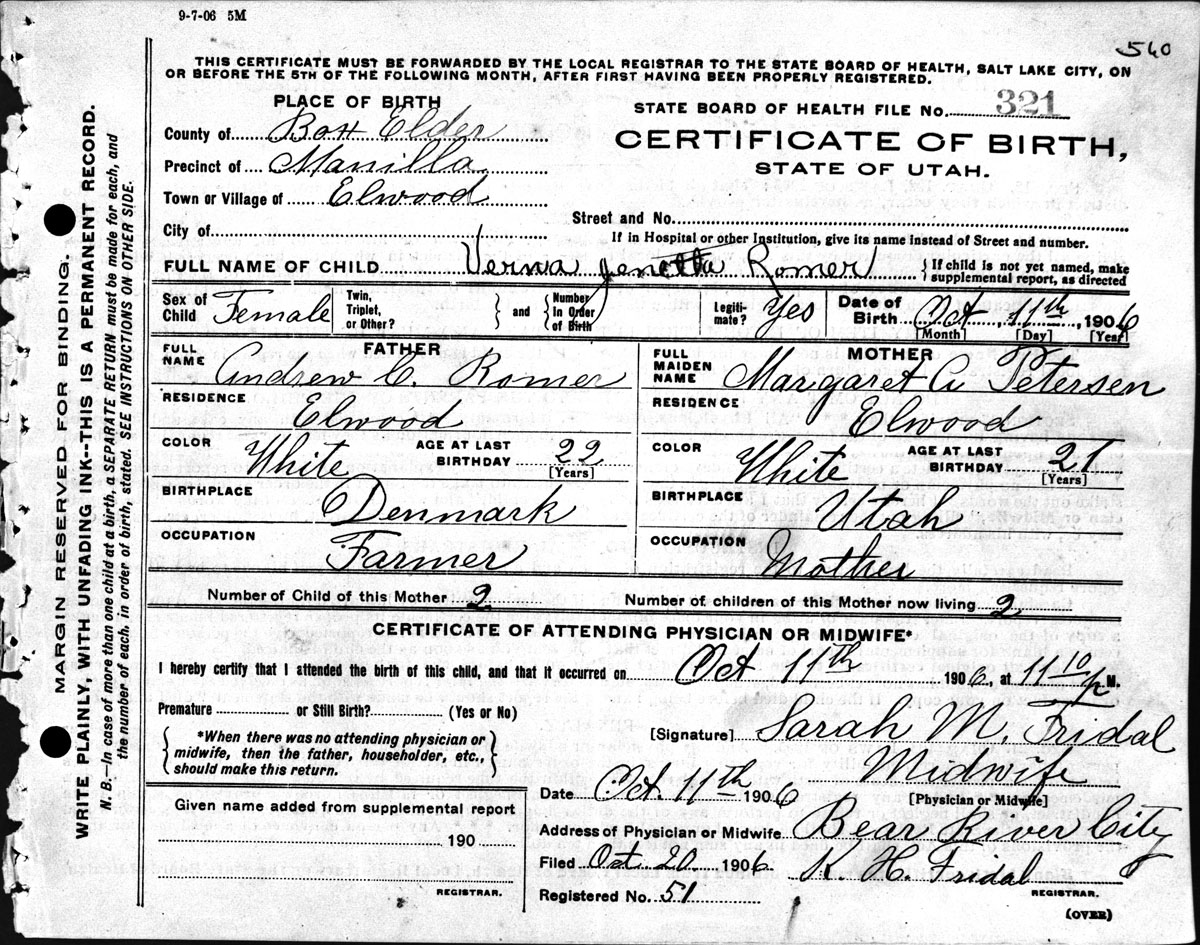 9-7-06 5M
540
THIS CERTIFICATE MUST BE FORWARDED BY THE LOCAL REGISTRAR TO THE STATE BOARD OF HEALTH, SALT LAKE CITY, ON
OR BEFORE THE 5TH OF THE FOLLOWING MONTH, AFTER FIRST HAVING BEEN PROPERLY REGISTERED.
PLACE OF BIRTH
County of Box Elder
Precinct of Manilla
Town or Village of Elwood
City of
STATE BOARD OF HEALTH FILE No. 321
CERTIFICATE OF BIRTH,
STATE OF UTAH.
Street and No.
If in Hospital or other Institution, give its name instead of Street and number.
FULL NAME OF CHILD Verna Romer { If child is not yet named, make
supplemental report, as directed
Sex of Child Female Twin, Triplet, or Other? } and { Number In Order of Birth Legiti- mate? Yes Date of Birth Oct 11th, 1906
[Month] [Day] [Year]
FATHER
FULL NAME Andrew C. Romer
RESIDENCE Elwood
COLOR White AGE AT LAST BIRTHDAY 22
[Years]
BIRTHPLACE Denmark
OCCUPATION Farmer
MOTHER
FULL MAIDEN NAME Margaret A Petersen
RESIDENCE Elwood
COLOR White AGE AT LAST BIRTHDAY 21
[Years]
BIRTHPLACE Utah
OCCUPATION Mother
Number of Child of this Mother 2 Number of children of this Mother now living 2
CERTIFICATE OF ATTENDING PHYSICIAN OR MIDWIFE*
I hereby certify that I attended the birth of this child, and that it occurred on Oct 11th 1906, at 11 10 p M.
Premature or Still Birth? (Yes or No)
{ *When there was no attending physician or
midwife, then the father, householder, etc.,
should make this return. }
[Signature] Sarah M. Fridal
Midwife
[Physician or Midwife]
Date Oct 11th 1906
Address of Physician or Midwife Bear River City
Filed Oct. 20 1906 K. H. Fridal
REGISTRAR.
Registered No. 51
(OVER)
Given name added from supplemental report
190
REGISTRAR.
MARGIN RESERVED FOR BINDING.
WRITE PLAINLY, WITH UNFADING INK--THIS IS A PERMANENT RECORD.
N. B.—In case of more than one child at a birth, a SEPARATE RETURN must be made for each, and
the number of each, in order of birth, stated. SEE INSTRUCTIONS ON OTHER SIDE.